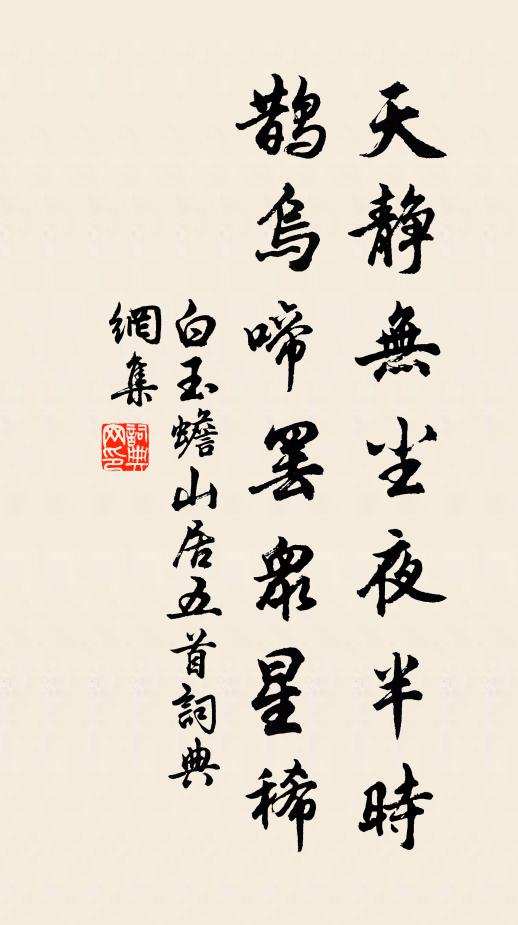 天静無尘夜半時
鹊烏啼罢衆星稀
白玉蟾山居五首詞典
網集
詞典
网印